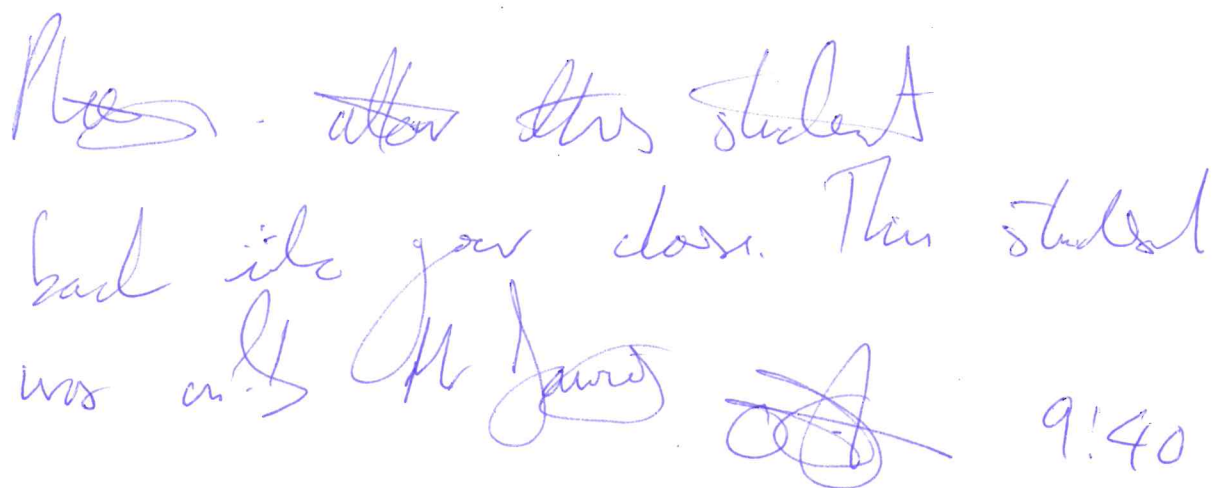 Please allow this student
back into your class. This student
was with Mr 9:40